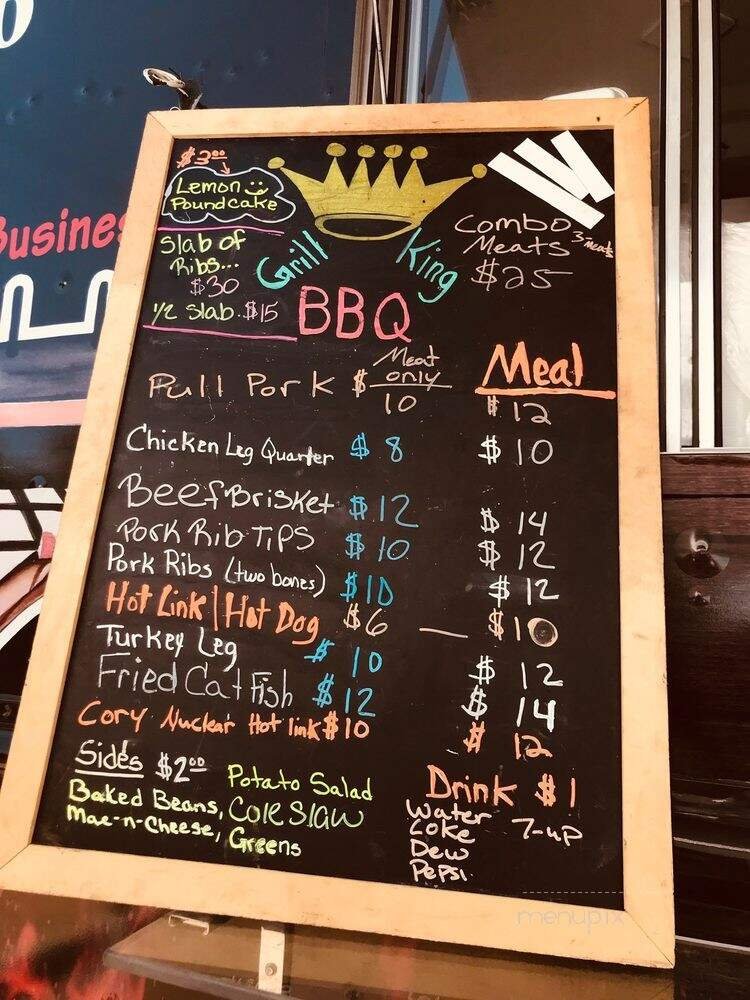 $3.00
Lemon
Poundcake
Slab of
Ribs...
$30
1/2 Slab $15
Grill King
BBQ
Combo
Meats 3 meats
$25
Meat
only
Meal
Pull Pork $ 10 $ 12
Chicken Leg Quarter $ 8 $ 10
Beef Brisket $ 12 $ 14
Pork Rib Tips $ 10 $ 12
Pork Ribs (two bones) $ 10 $ 12
Hot Link | Hot Dog $6 — $10
Turkey Leg $ 10 $ 12
Fried Cat Fish $ 12 $ 14
Cory Nuclear Hot link $10 $ 12
Sides $2.00
Potato Salad
Baked Beans, Cole Slaw
Mac-n-Cheese, Greens
Drink $1
Water 7-up
Coke
Dew
Pepsi
Busines
menupix